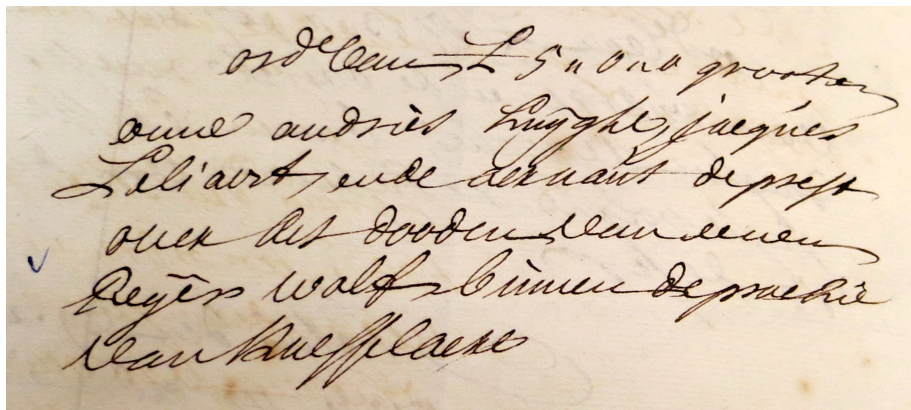 orde van L 5 " 0 " 0 grooten
aume andries Huÿghe, jacques
Leliaert, ende aernaut de prest
over het dooden van eenen
heyen wolf binnen de prochie
van Ruffelaere